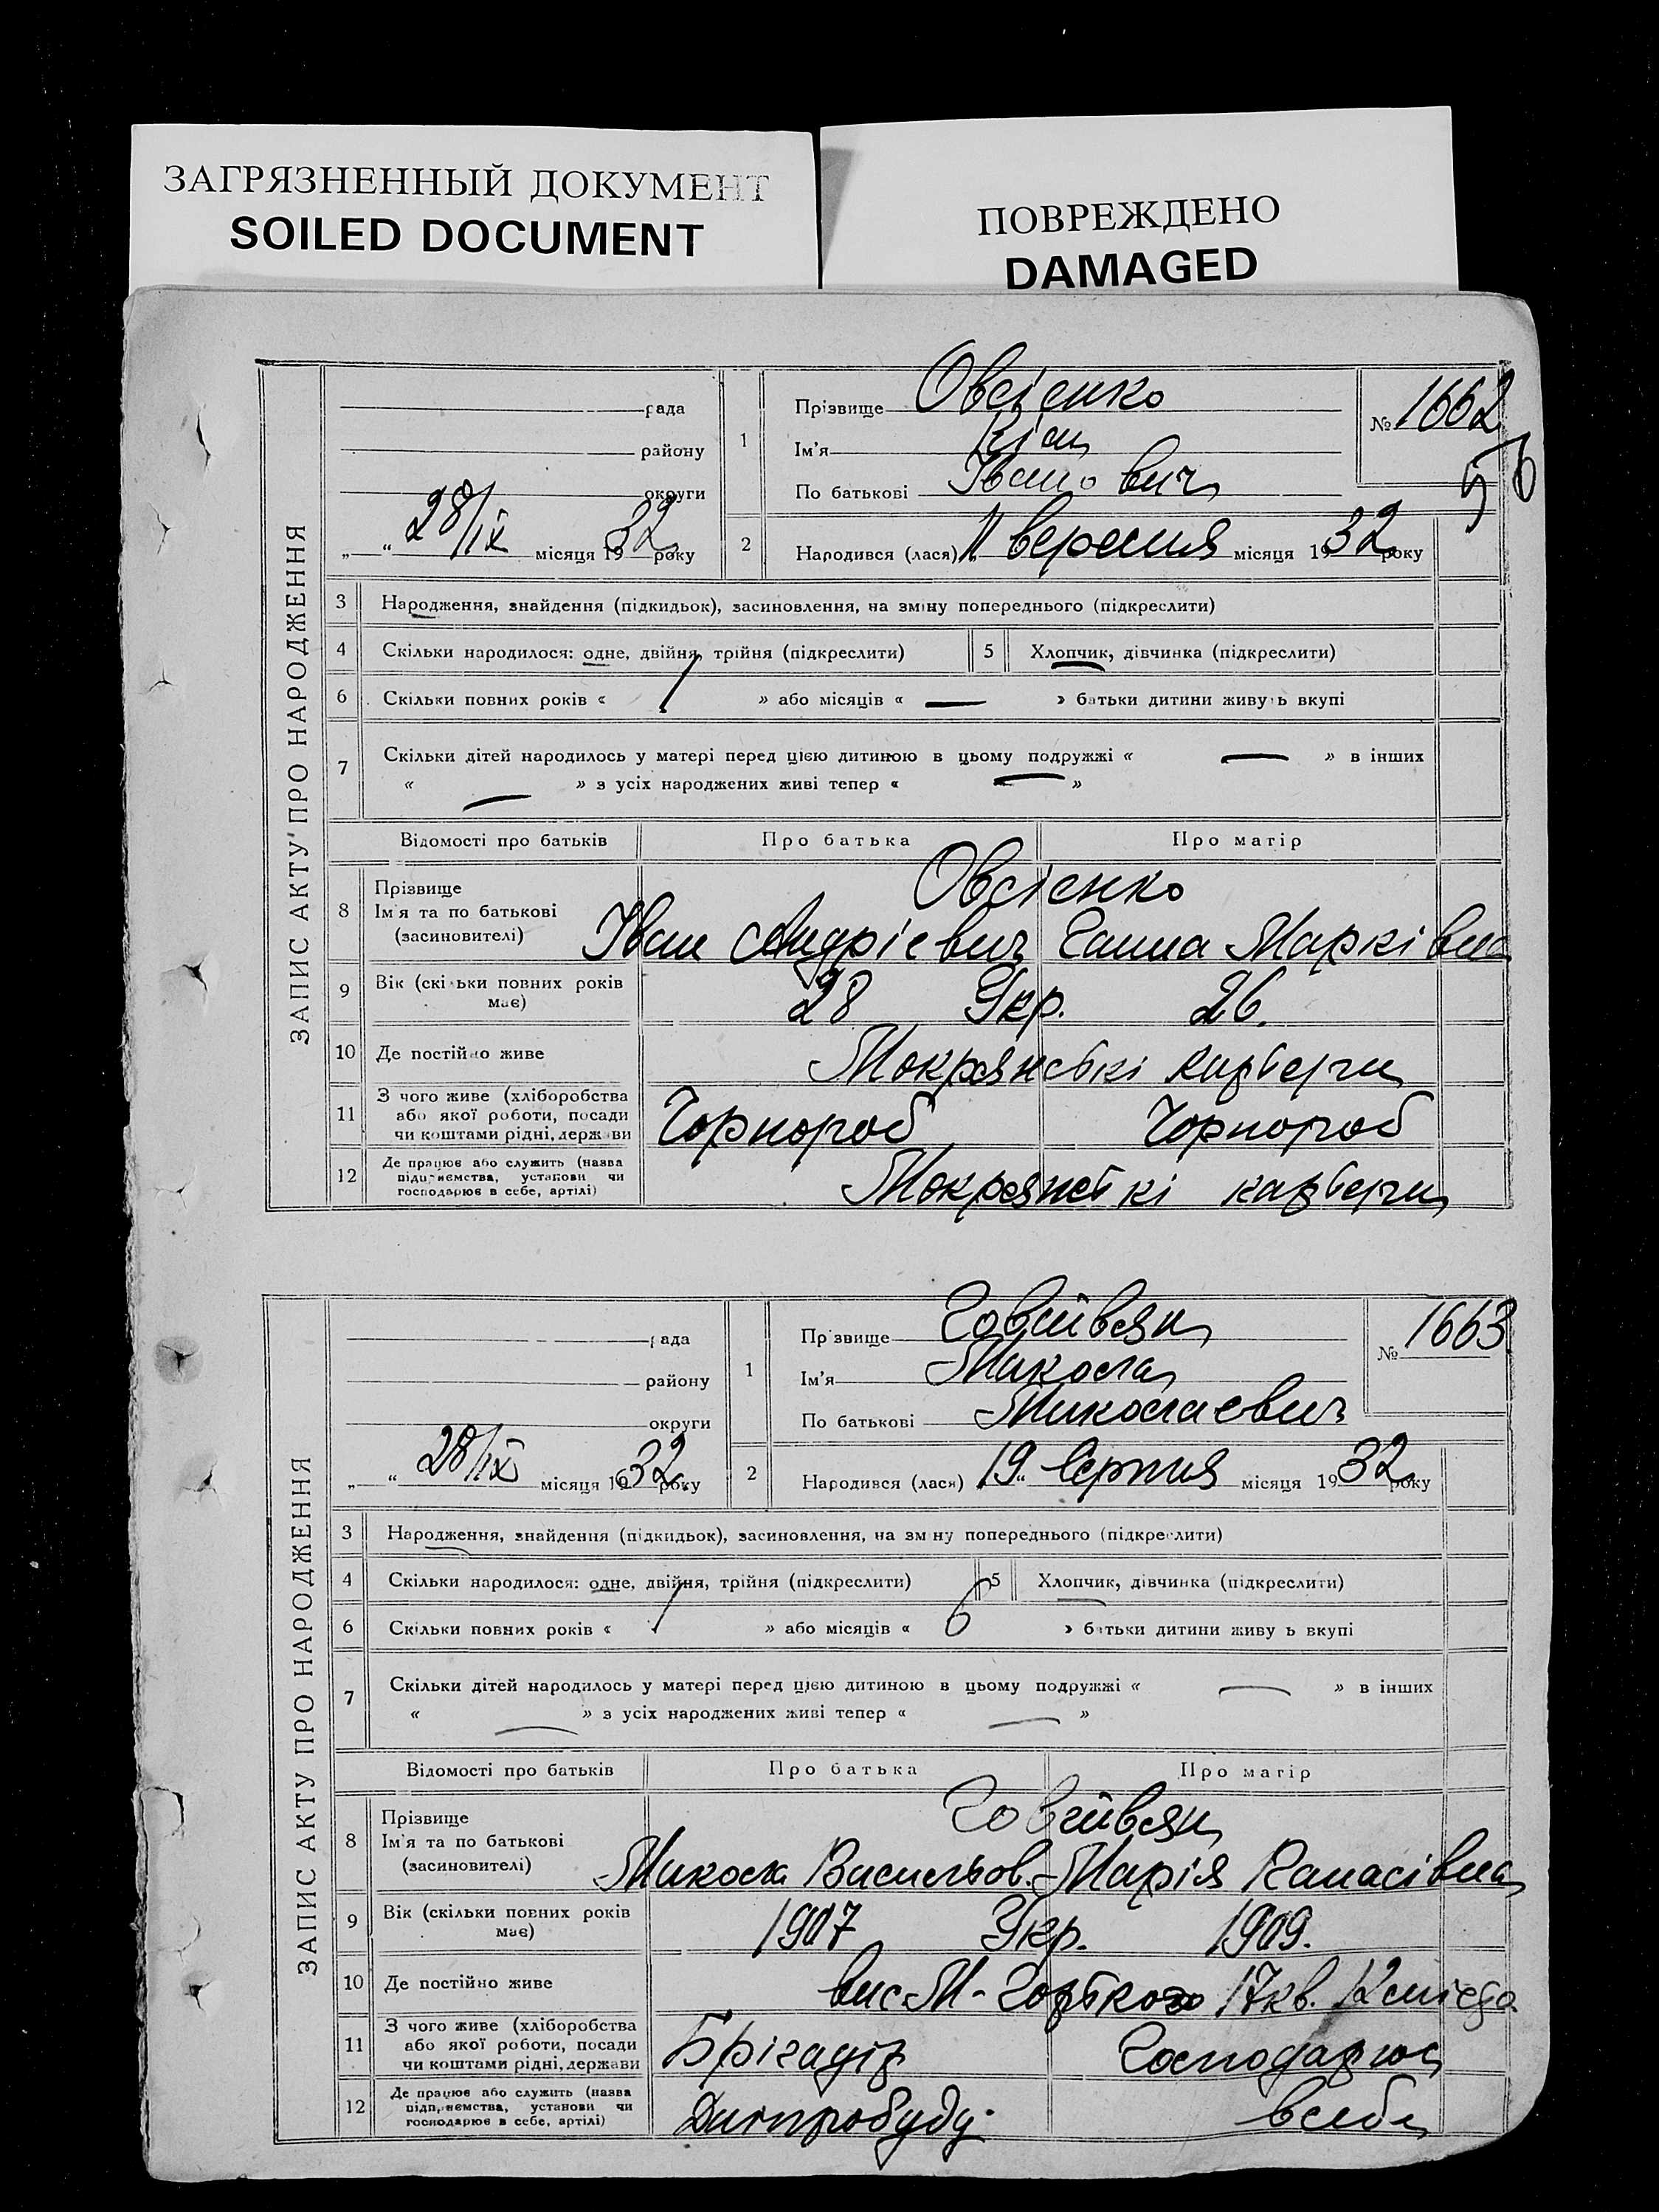 ЗАГРЯЗНЕННЫЙ ДОКУМЕНТ
SOILED DOCUMENT
ПОВРЕЖДЕНО
DAMAGED
ЗАПИС АКТУ ПРО НАРОДЖЕННЯ
рада
району
округи
„ “ 28/IX місяця 1932 року
1
Прізвище Овсієнко
Ім'я
По батькові Іванович
№ 1662
56
2
Народився (лася) „11 вересня місяця 1932 року
3 Народження, знайдення (підкидьок), засиновлення, на зміну попереднього (підкреслити)
4 Скільки народилося: одне, двійня, трійня (підкреслити) 5 Хлопчик, дівчинка (підкреслити)
6 Скільки повних років « 1 » або місяців « — » батьки дитини живуть вкупі
7 Скільки дітей народилось у матері перед цією дитиною в цьому подружжі « — » в інших
« — » з усіх народжених живі тепер « — »
Відомості про батьків Про батька Про матір
8 Прізвище
Ім'я та по батькові
(засиновителі)
Овсієнко
Іван Андрієвич Ганна Марківна
9 Вік (скільки повних років має) 28 Укр. 26.
10 Де постійно живе Мокрянські карьери
11 З чого живе (хліборобства
або якої роботи, посади
чи коштами рідні, держави
Чорнороб Чорнороб
12 Де працює або служить (назва
підприємства, установи чи
господарює в себе, артілі)
Мокрянські карьери
ЗАПИС АКТУ ПРО НАРОДЖЕННЯ
рада
району
округи
„ “ 28/IX місяця 1932 року
1
Прізвище
Ім'я Микола
По батькові Миколаевич
№ 1663
2
Народився (лася) 19 “ серпня місяця 1932 року
3 Народження, знайдення (підкидьок), засиновлення, на зміну попереднього (підкреслити)
4 Скільки народилося: одне, двійня, трійня (підкреслити) 5 Хлопчик, дівчинка (підкреслити)
6 Скільки повних років « 1 » або місяців « 6 » батьки дитини живуть вкупі
7 Скільки дітей народилось у матері перед цією дитиною в цьому подружжі « — » в інших
« — » з усіх народжених живі тепер « — »
Відомості про батьків Про батька Про матір
8 Прізвище
Ім'я та по батькові
(засиновителі)
Микола Васильов.- Марія Панасівна
9 Вік (скільки повних років має) 1907 Укр. 1909.
10 Де постійно живе вис М-Горького 17 кв. 12
11 З чого живе (хліборобства
або якої роботи, посади
чи коштами рідні, держави
Брігадір Господарює
12 Де працює або служить (назва
підприємства, установи чи
господарює в себе, артілі)
Дніпробуду в себе